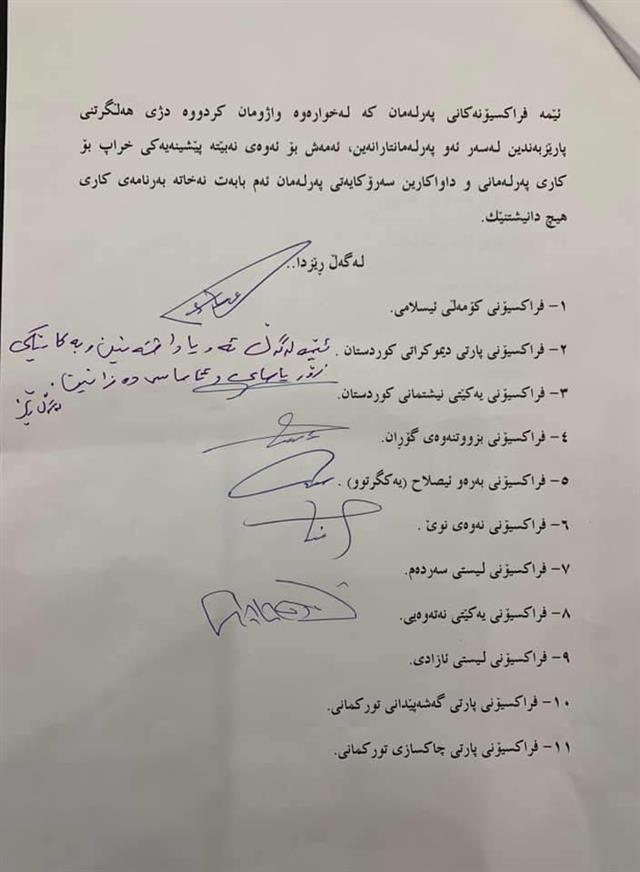 ئێمە فراکسیۆنەکانی پەرلەمان کە لەخوارەوە واژومان کردووە دژی هەڵگرتنی
پارێزبەندین لەسەر ئەو پەرلەمانتارانەین، ئەمەش بۆ ئەوەی نەبێتە پێشینەیەکی خراپ بۆ
کاری پەرلەمانی و داواکارین سەرۆکایەتی پەرلەمان ئەم بابەت نەخاتە بەرنامەی کاری
هیچ دانیشتنێك.
لەگەڵ ڕێزدا..
١- فراکسیۆنی کۆمەڵی ئیسلامی.
٢- فراکسیۆنی پارتی دیموکراتی کوردستان . ئێمە لەگەڵ
زۆر یاسای
٣- فراکسیۆنی یەکێتی نیشتمانی کوردستان.
٤- فراکسیۆنی بزووتنەوەی گۆڕان.
٥- فراکسیۆنی بەرەو ئیصلاح (یەکگرتوو) .
٦- فراکسیۆنی نەوەی نوێ .
٧- فراکسیۆنی لیستی سەردەم.
٨- فراکسیۆنی یەکێتی نەتەوەیی.
٩- فراکسیۆنی لیستی ئازادی.
١٠- فراکسیۆنی پارتی گەشەپێدانی تورکمانی.
١١- فراکسیۆنی پارتی چاکسازی تورکمانی.